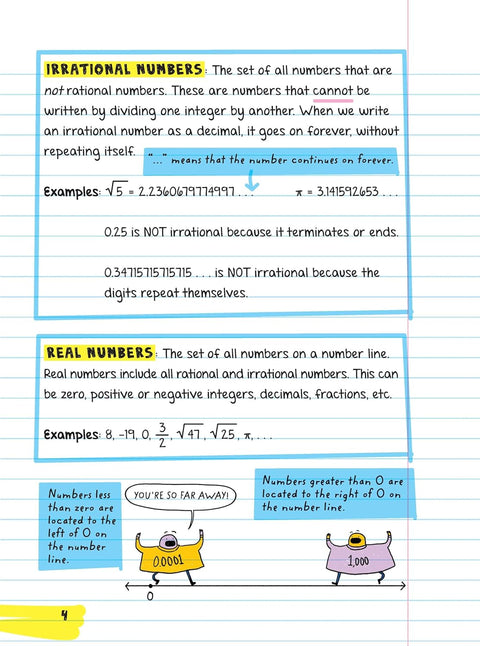 IRRATIONAL NUMBERS: The set of all numbers that are
not rational numbers. These are numbers that cannot be
written by dividing one integer by another. When we write
an irrational number as a decimal, it goes on forever, without
repeating itself.
“...” means that the number continues on forever.
Examples: √5 = 2.2360679774997 . . . π = 3.141592653 . . .
0.25 is NOT irrational because it terminates or ends.
0.34715715715715 . . . is NOT irrational because the
digits repeat themselves.
REAL NUMBERS: The set of all numbers on a number line.
Real numbers include all rational and irrational numbers. This can
be zero, positive or negative integers, decimals, fractions, etc.
Examples: 8, -19, 0, 3/2, √47, √25, π, . . .
Numbers less
than zero are
located to the
left of 0 on
the number
line.
YOU'RE SO FAR AWAY!
Numbers greater than 0 are
located to the right of 0 on
the number line.
0.0001
1,000
0
4